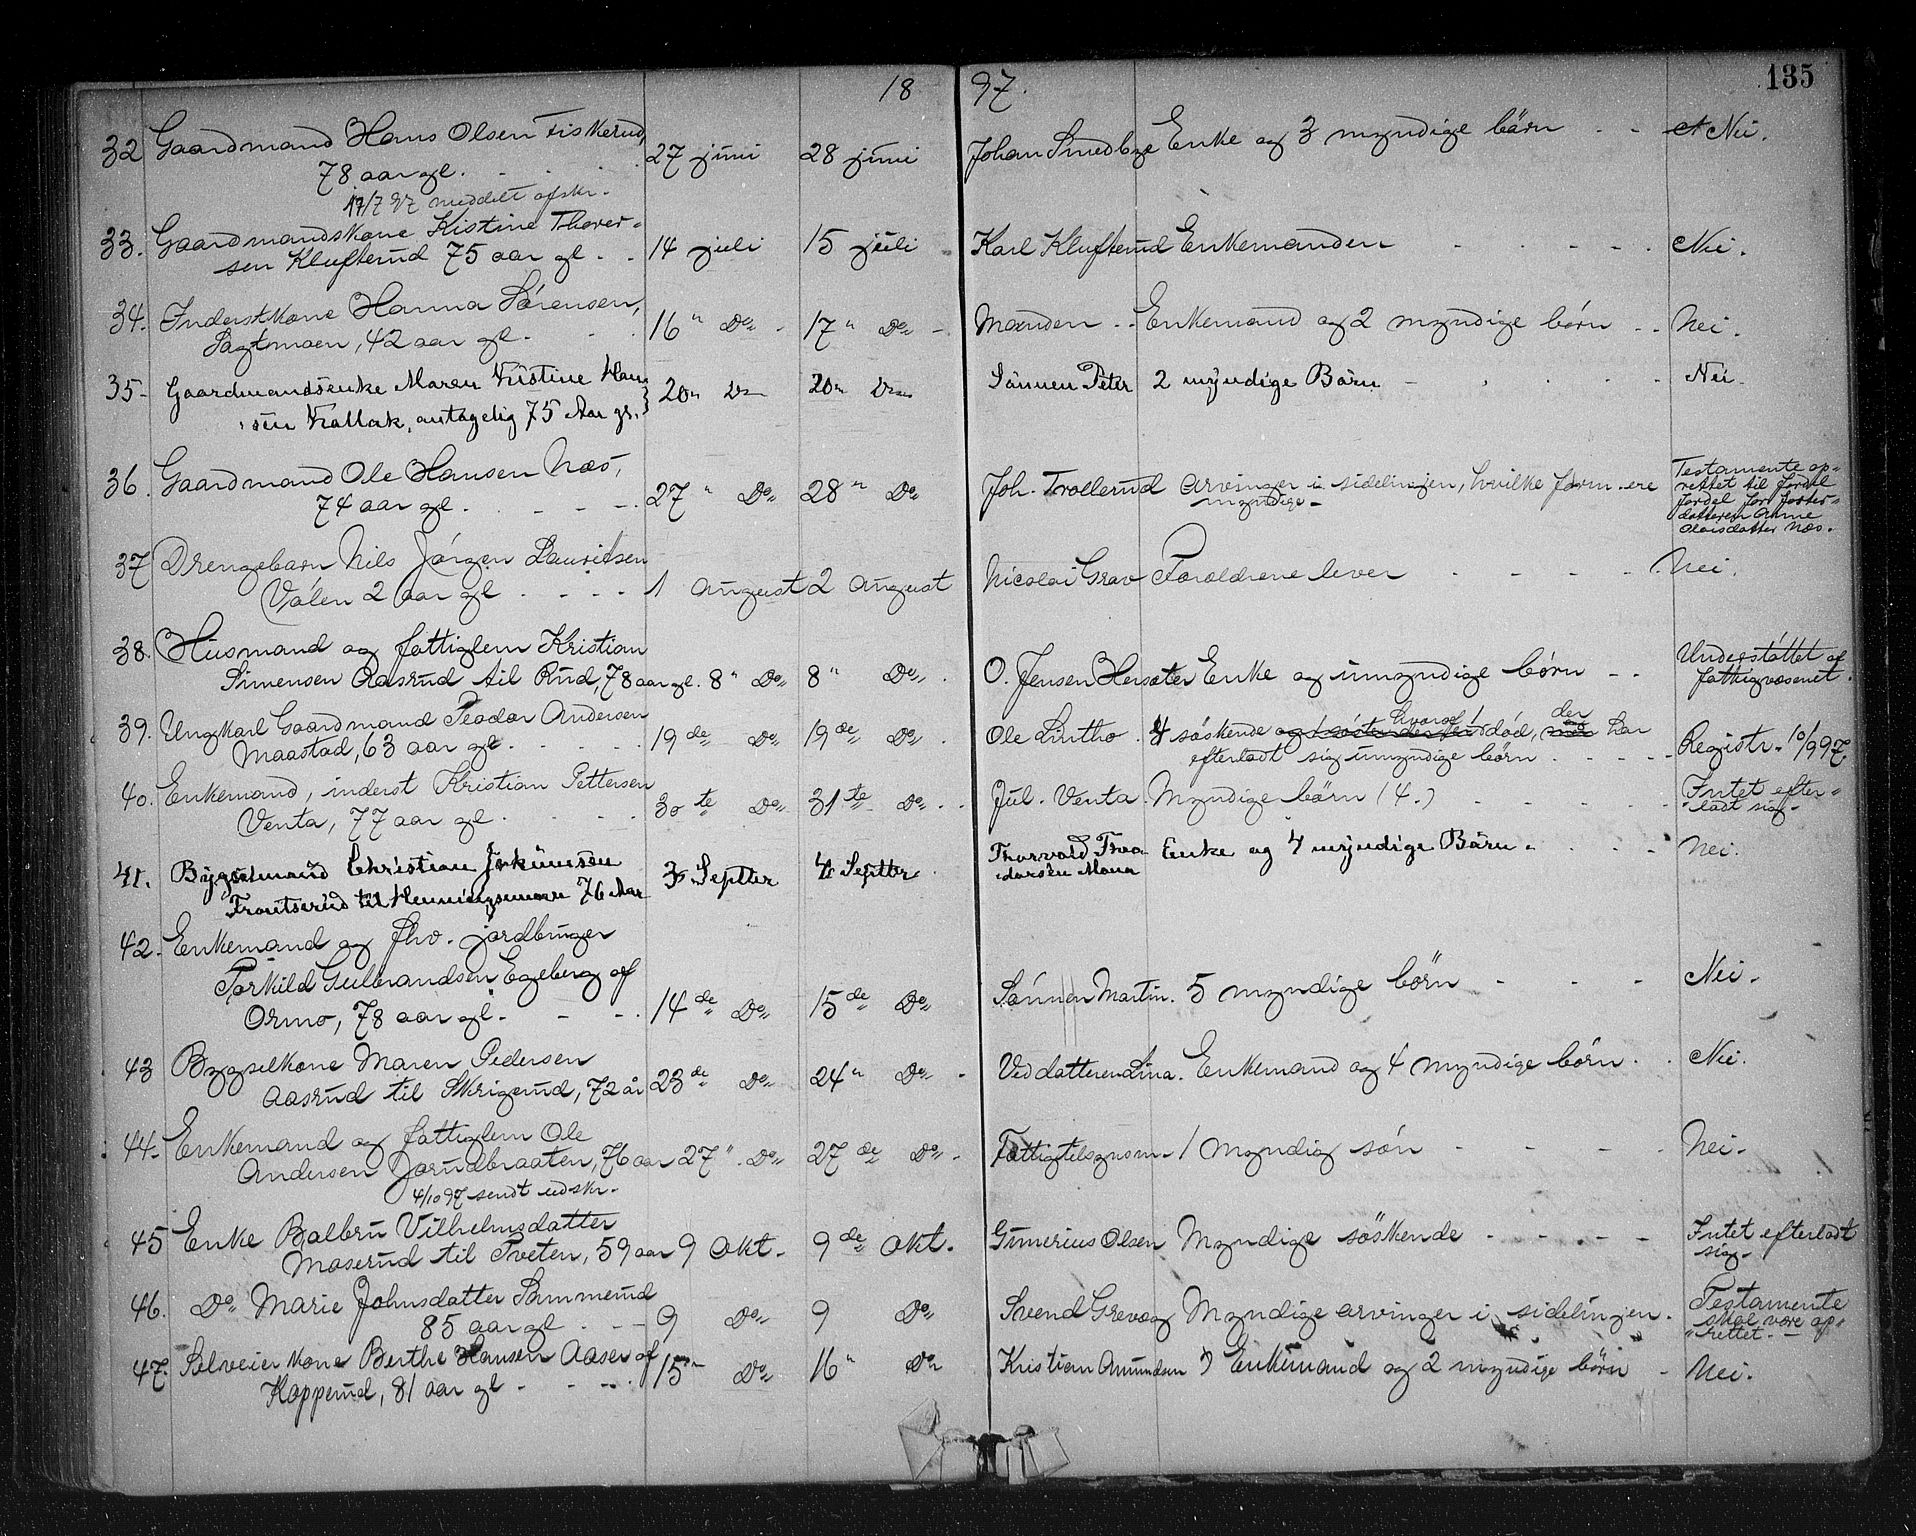 1897.
135
32 Gaardmand Hans Olsen Fiskerud,
78 aar gl. 27 juni 28 juni Johan Smedbye Enke og 3 myndige börn - - Nei.
19/7 97 meddelt afskr.
33. Gaardmandskone Kistine Thorer-
sen Klufterud 75 aar gl. - 14 juli 15 juli Karl Klufterud Enkemanden - - - - Nei.
34. Inderstkone Hanna Sørensen,
Sagtmoen, 42 aar gl. 16" Do - 17" Do - Manden - - Enkemand og 2 myndige børn - - Nei.
35- Gaardmandsenke Maren Kristine Han
sen Kallak, antagelig 75 Aar gl. 20" Do 20" Do Sönnen Peter 2 myndige Börn - Nei.
36. Gaardmand Ole Hansen Næs,
74 aar gl. 27" Do 28" Do Joh. Trollerud arvinger i sidelinjen, hvilke form. ere
myndige -
Testamente op-
rettet til fordel
fordel for foster-
datteren Anne
Olaisdatter Næs.
37 Drengebarn Nils Jørgen Lauritsen
Válen 2 aar gl - - - - 1 August 2 August Nicolai Grav Forældrene lever - - - - Nei.
38. Husmand og fattiglem Kristian
Simensen Aasrud til Rud, 78 aar gl. 8" Do 8" Do O. Jensen Hersæter Enke og umyndige børn - - Understöttet af
fattigvæsenet.
39. Ungkarl Gaardmand Peodor Andersen
Maastad, 63 aar gl. 19de Do 19de Do. Ole Lintho. 4 söskende hvoraf 1 död, der har
efterladt sig umyndige börn - Registr. 10/9 97.
40. Enkemand, inderst Kristian Pettersen
Venta, 77 aar gl. 30te Do 31te Do. Jul. Venta. Myndige børn (4.) - - - - Intet efter-
ladt sig.
41. Bygselmand Christian Jokumsen
til Henningsmoen 76 Aar 3 Septter 4 Septter Thorvald Theo
dorsen Moua Enke og 4 myndige Börn. - - - Nei.
42. Enkemand og fhv. jordbruger
Torkild Gulbrandsen Egeberg af
Ormo, 78 aar gl. - - 14de Do 15de Do Sønnen Martin. 5 myndige börn - - - Nei.
43 Bygselkone Maren Pedersen
Aasrud til Skrigerud, 72 år 23de Do 24" Do - Ved datteren Lina. Enkemand og 4 myndige børn - - Nei.
44. Enkemand og fattiglem Ole
Andersen Jorudbraaten, 76 aar 27". Do 27de Do. Fattigtilsynsm. 1 myndig søn - - - - Nei.
4/10 97 sendt udskr.
45 Enke Balbru Vilhelmsdatter
Moserud til Tveten, 59 aar 9 Okt. 9de Okt. Gunerius Olsen Myndige söskende - - - - Intet efterladt
sig.
46. Do Marie Johnsdatter Sammerud
85 aar gl - - - 9 Do 9 Do Svend Grevæg Myndige arvinger i sidelinjen. Testamente
skal være op-
rettet. -
47. Selveierkone Berthe Hansen Aaser af
Kopperud, 81 aar gl - - - 15" Do 16" Do Kristian Amundsen Enkemand og 2 myndige børn - Nei.